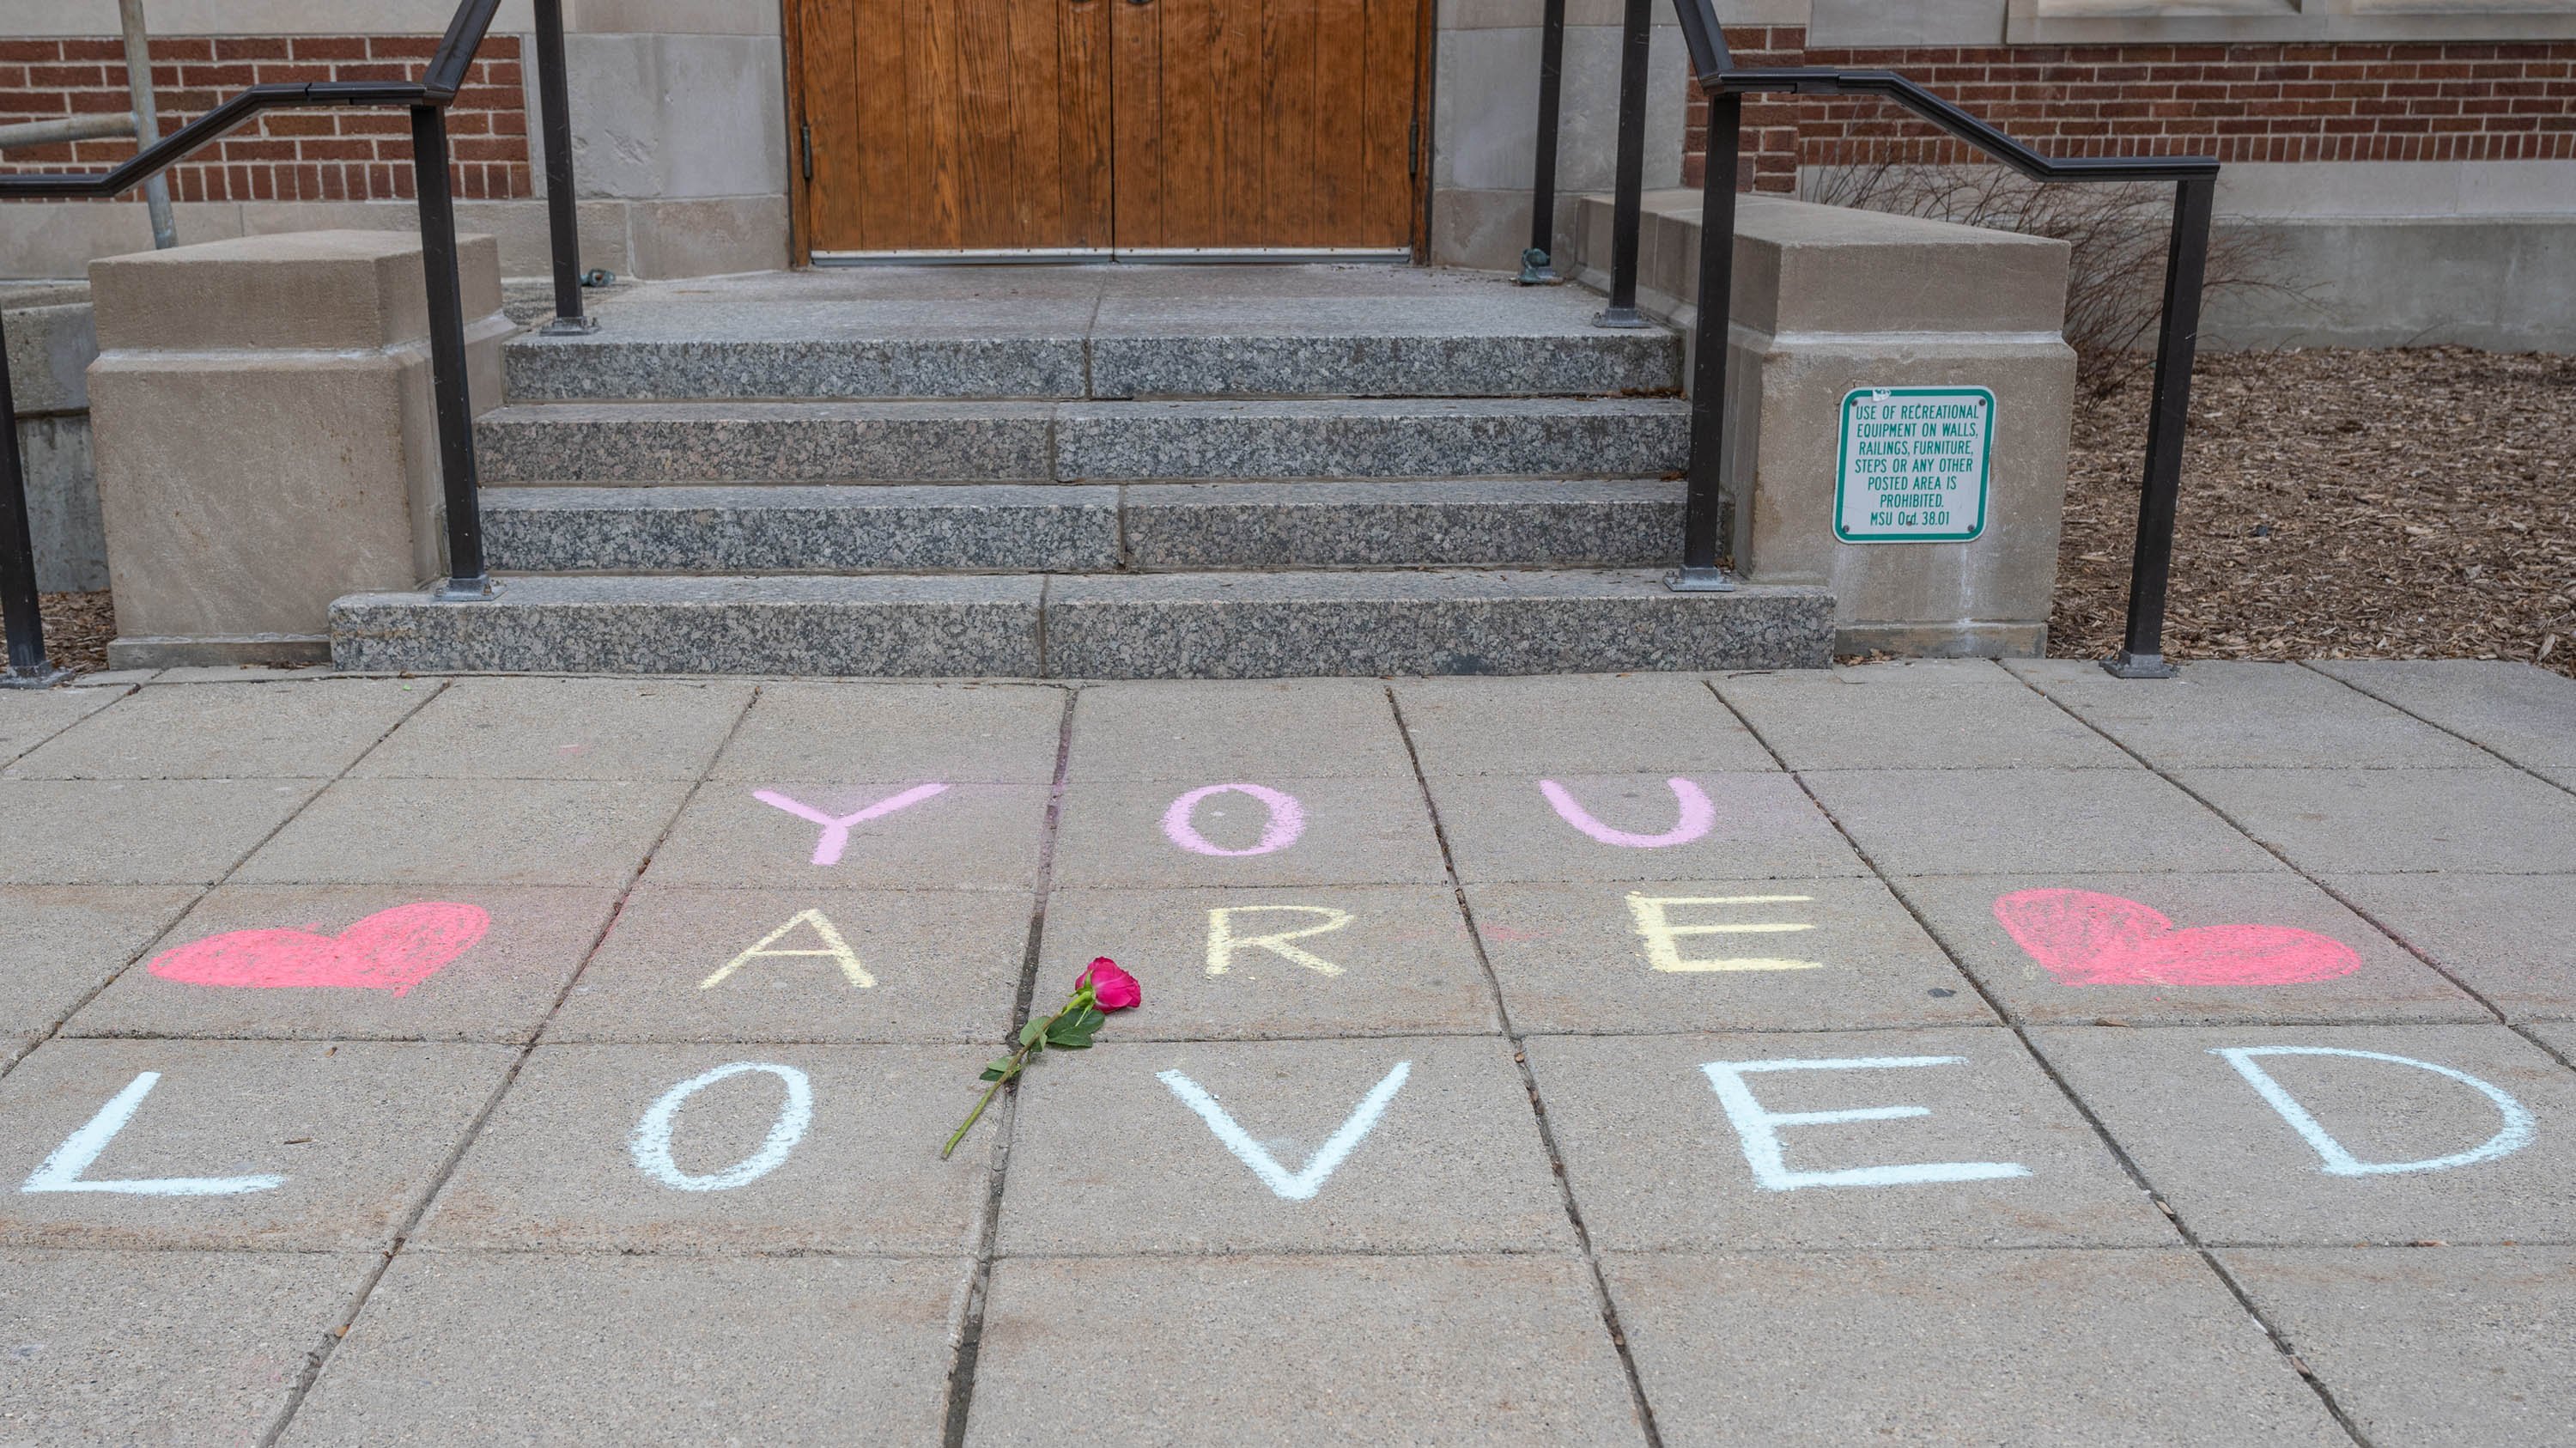 USE OF RECREATIONAL
EQUIPMENT ON WALLS,
RAILINGS, FURNITURE,
STEPS OR ANY OTHER
POSTED AREA IS
PROHIBITED.
MSU Ord. 38.01
YOU
ARE
LOVED